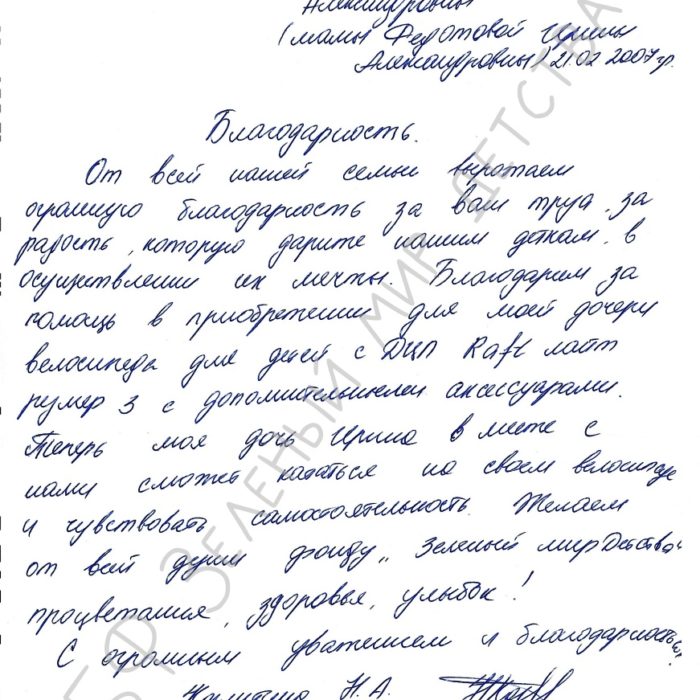 Александровны
(мамы Федотовой Ирины
Александровны) 21.02 2007 гр.
Благодарность.
От всей нашей семьи выражаем
огромную благодарность за ваш труд, за
радость, которую дарите нашим деткам, в
осуществлении их мечты. Благодарим за
помощь в приобретении для моей дочери
велосипеда для детей с ДЦП Raft лайт
размер 3 с дополнительными аксессуарами.
Теперь моя дочь Ирина в месте с
нами сможет кататься на своем велосипеде
и чувствовать самостоятельность. Желаем
от всей души фонду „Зеленый мир Детства“
процветания, здоровья, улыбок!
С огромным уважением и благодарностью!
Н.А.
БФ ЗЕЛЕНЫЙ МИР ДЕТСТВА